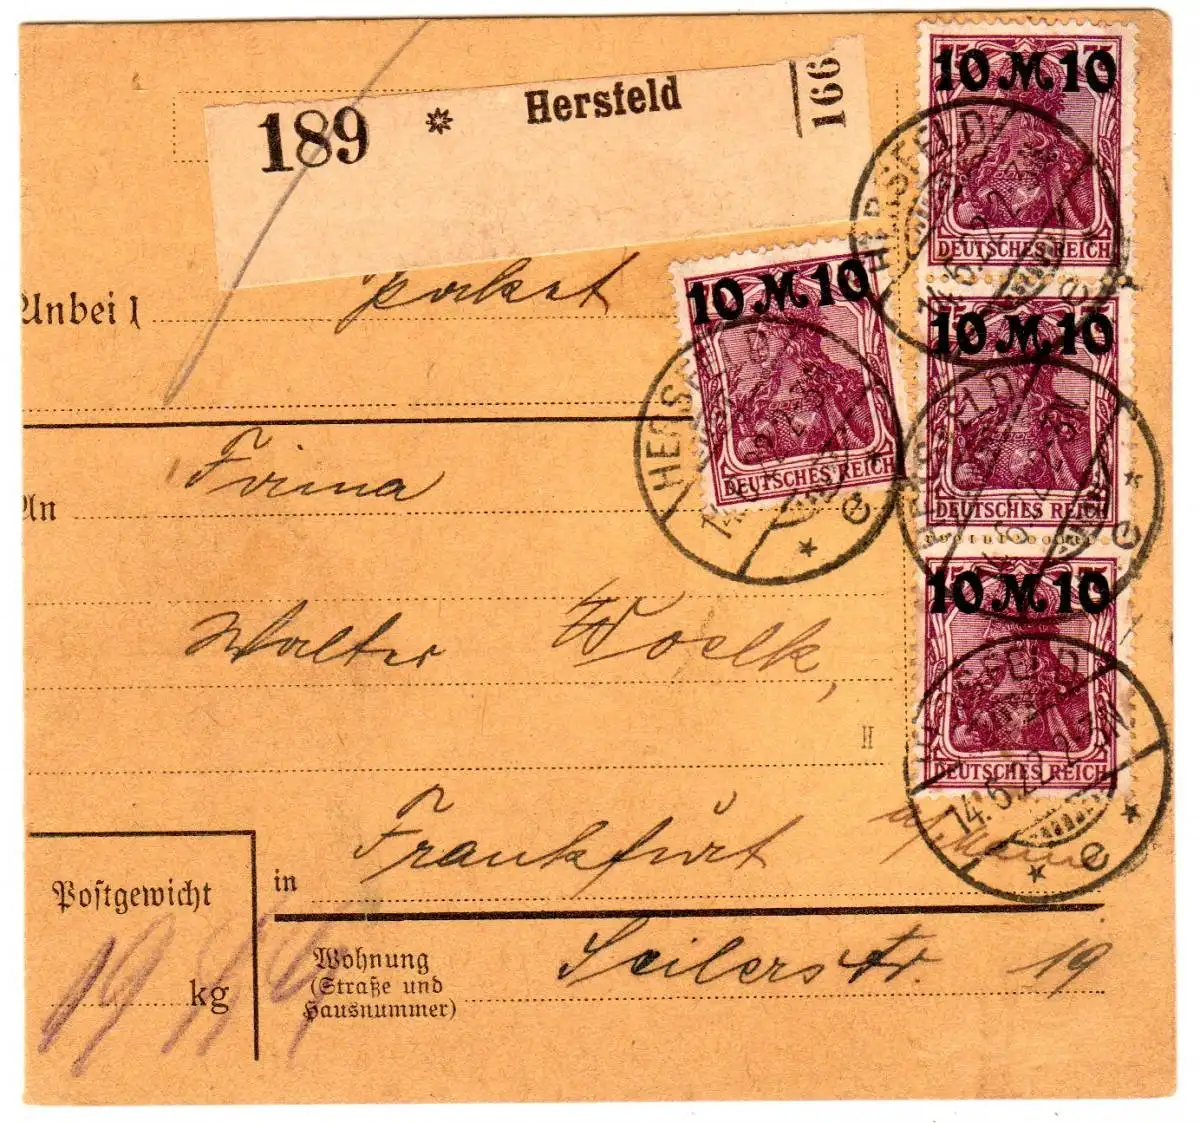 189 * Hersfeld 166
Anbei 1 Paket
An Firma
Walter Woelk,
II
in Frankfurt a/Main
Seilerstr. 19
Postgewicht
19
kg
Wohnung
(Straße und
Hausnummer)
10 M 10
DEUTSCHES REICH
10 M 10
75 75
DEUTSCHES REICH
10 M 10
75 75
DEUTSCHES REICH
10 M 10
75 75
DEUTSCHES REICH
HERSFELD
* e
HERSFELD
* e *
HERSFELD
* e *
14.6.22 2-3N
* e *